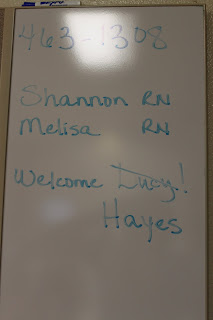 463-1308
Shannon RN
Melisa RN
Welcome Lucy!
Hayes